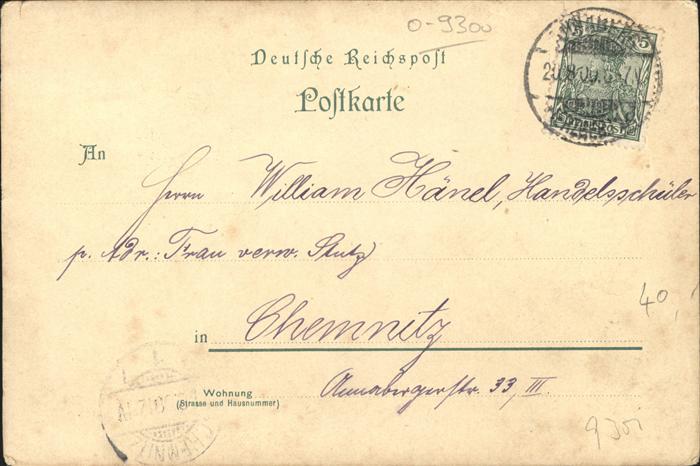 0-9300
ANNABERG
5
REICHSPOST
Deutsche Reichspost
Postkarte
An
Herrn William Hänel, Handelsschüler
p. Adr.: Frau verw. Stutz
40,
in Chemnitz
Wohnung
(Strasse und Hausnummer)
Annabergerstr. 33, III.
CHEMNITZ